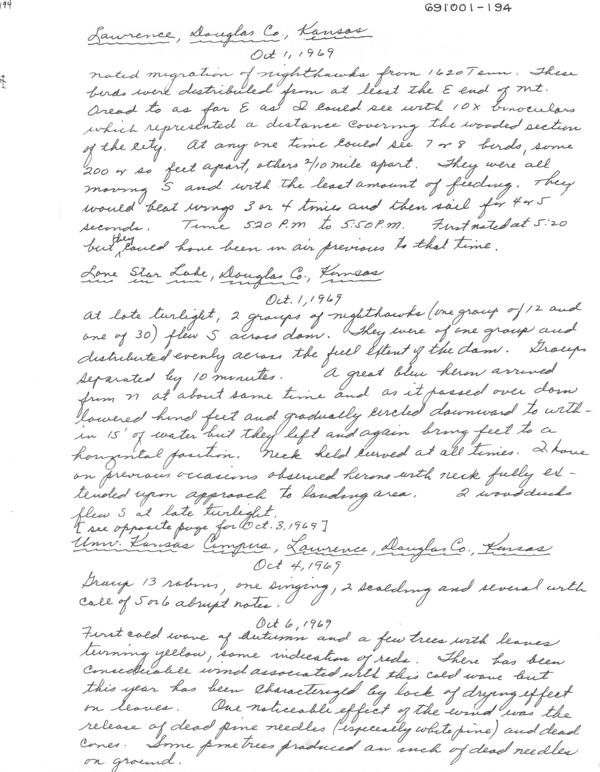 194
691001-194
Lawrence, Douglas Co., Kansas
Oct 1, 1969
Noted migration of nighthawks from 1620 Tenn. These
birds were distributed from at least the E end of Mt.
Oread to as far E as I could see with 10x binoculars
which represented a distance covering the wooded section
of the city. At any one time could see 7 or 8 birds, some
200 or so feet apart, others 2/10 mile apart. They were all
moving S and with the least amount of feeding. They
would beat wings 3 or 4 times and then sail for 4 or 5
seconds. Time 520 P.M to 5:50 P.M. First noted at 5:20
but they could have been in air previous to that time.
Lone Star Lake, Douglas Co., Kansas
Oct. 1, 1969
At late twilight, 2 groups of nighthawks (one group of 12 and
one of 30) flew S across dam. They were of one group and
distributed evenly across the full extent of the dam. Groups
separated by 10 minutes. A great blue heron arrived
from N at about same time and as it passed over dam
lowered hind feet and gradually circled downward to with-
in 15' of water but they left and again bring feet to a
horizontal position. Neck held curved at all times. I have
on previous occasions observed herons with neck fully ex-
tended upon approach to landing area. 2 wood ducks
flew S at late twilight.
[see opposite page for Oct. 3, 1969]
Univ. Kansas Campus, Lawrence, Douglas Co., Kansas
Oct 4, 1969
Group 13 robins, one singing, 2 scolding and several with
call of 5 or 6 abrupt notes.
Oct 6, 1969
First cold wave of Autumn and a few trees with leaves
turning yellow, some indication of reds. There has been
considerable wind associated with this cold wave but
this year has been characterized by lack of drying effect
on leaves. One noticeable effect of the wind was the
release of dead pine needles (especially white pine) and dead
cones. Some pine trees produced an inch of dead needles
on ground.